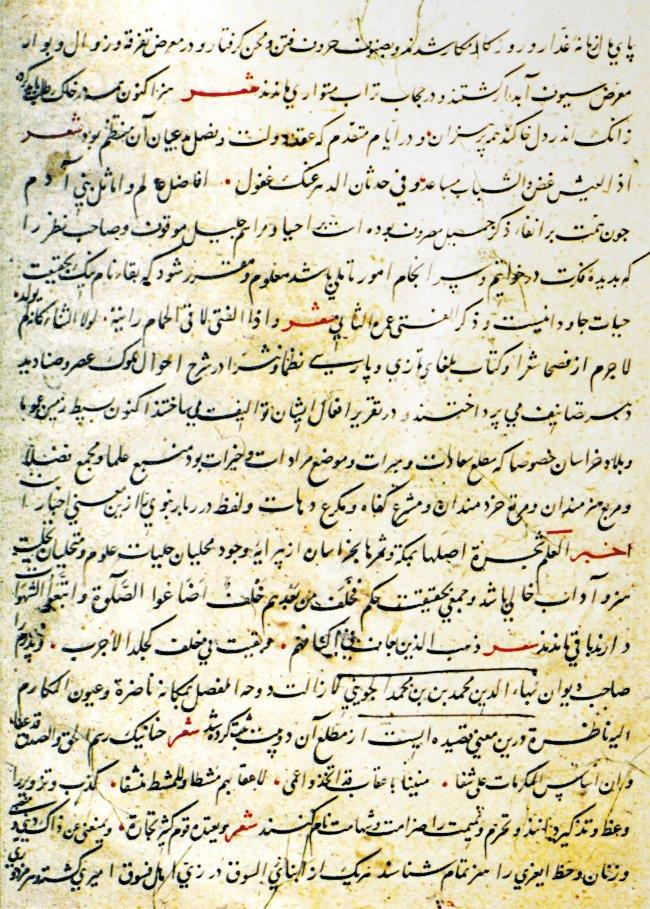 پای مال زمانه غدار و روزگار مکار شدند و بصنوف صروف فتن و محن گرفتار و در معرض تفرقه و زوال و بوار
معرض سیوف آبدار گشتند و در حجاب تراب متواری ماندند شعر هنر اکنون همه در خاک طلب باید کرد
زانک اندر دل خاکند همه پر هنران و در ایام متقدم که عقد دولت و فضل مدعیان آن منتظم بود شعر
اذ العیش غض و الشباب مساعد و فی حدثان الدهر عنک غفول افاضل عالم و اماثل بنی آدم
چون همت بر ابقاء ذکر جمیل مصروف بوده است احیاء مراسم جلیل موقوف و صاحب نظر را
که بدیده فکرت در خواتیم و سر انجام امور تاملی باشد معلوم و مقرر شود که بقاء نام نیک بحقیقت
حیات جاودانیست و ذکر الفتی عمره الثانی شعر و اذا الفتی لاقی الحمام رایته لولا الثناء کانه لم یولد
لاجرم از فصحا شعرا و کتاب بلغای تازی و پارسی نظما و نثرا در شرح احوال ملوک عصر و صنادید
دهر تصانیف می پرداختند و در تقریر افعال ایشان توالیف می ساختند اکنون بسیط زمین عموما
و بلاد خراسان خصوصا که مطلع سعادات و مبرات و موضع مرادات و خیرات بود منبع علما و مجمع فضلا
و مربع هنرمندان و مرتع خردمندان و مشرع کفاة و مکرع دهات و لفظ درربار نبوی را ازین معنی اخبارست
خبر العلم شجرة اصلها بمکة و ثمرها بخراسان از پیرایه وجود محلیان حلیات علوم و متحلیان بحلیت
هنر و آداب خالی باشد و جمعی بحقیقت حکم فخلف من بعدهم خلف اضاعوا الصلوة و اتبعوا الشهوات
دارند باقی ماندند شعر ذهب الذین یعاش فی اکنافهم و بقیت فی خلف کجلد الاجرب و پدرم
صاحب دیوان بهاء الدین محمد بن محمد الجوینی لا زالت دوحة الفضل بمکانه ناضرة و عیون المکارم
الیه ناظرة درین معنی قصیده ایست از مطلع آن دو بیت ثبت کرده شد شعر حنانیک رسم الحق و الصدق قد عفا
و ان اساس المکرمات علی شفا منینا باعقاب قد اتخذوا عمی لاعقابهم مشطا و للمشط منشفا کذب و تزویر را
وعظ و تذکیر دانند و تحرم و نمیمت را صرامت و شهامت نام کنند شعر